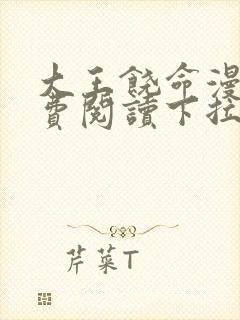 大王饶命漫
费阅讀下拉
芹菜T